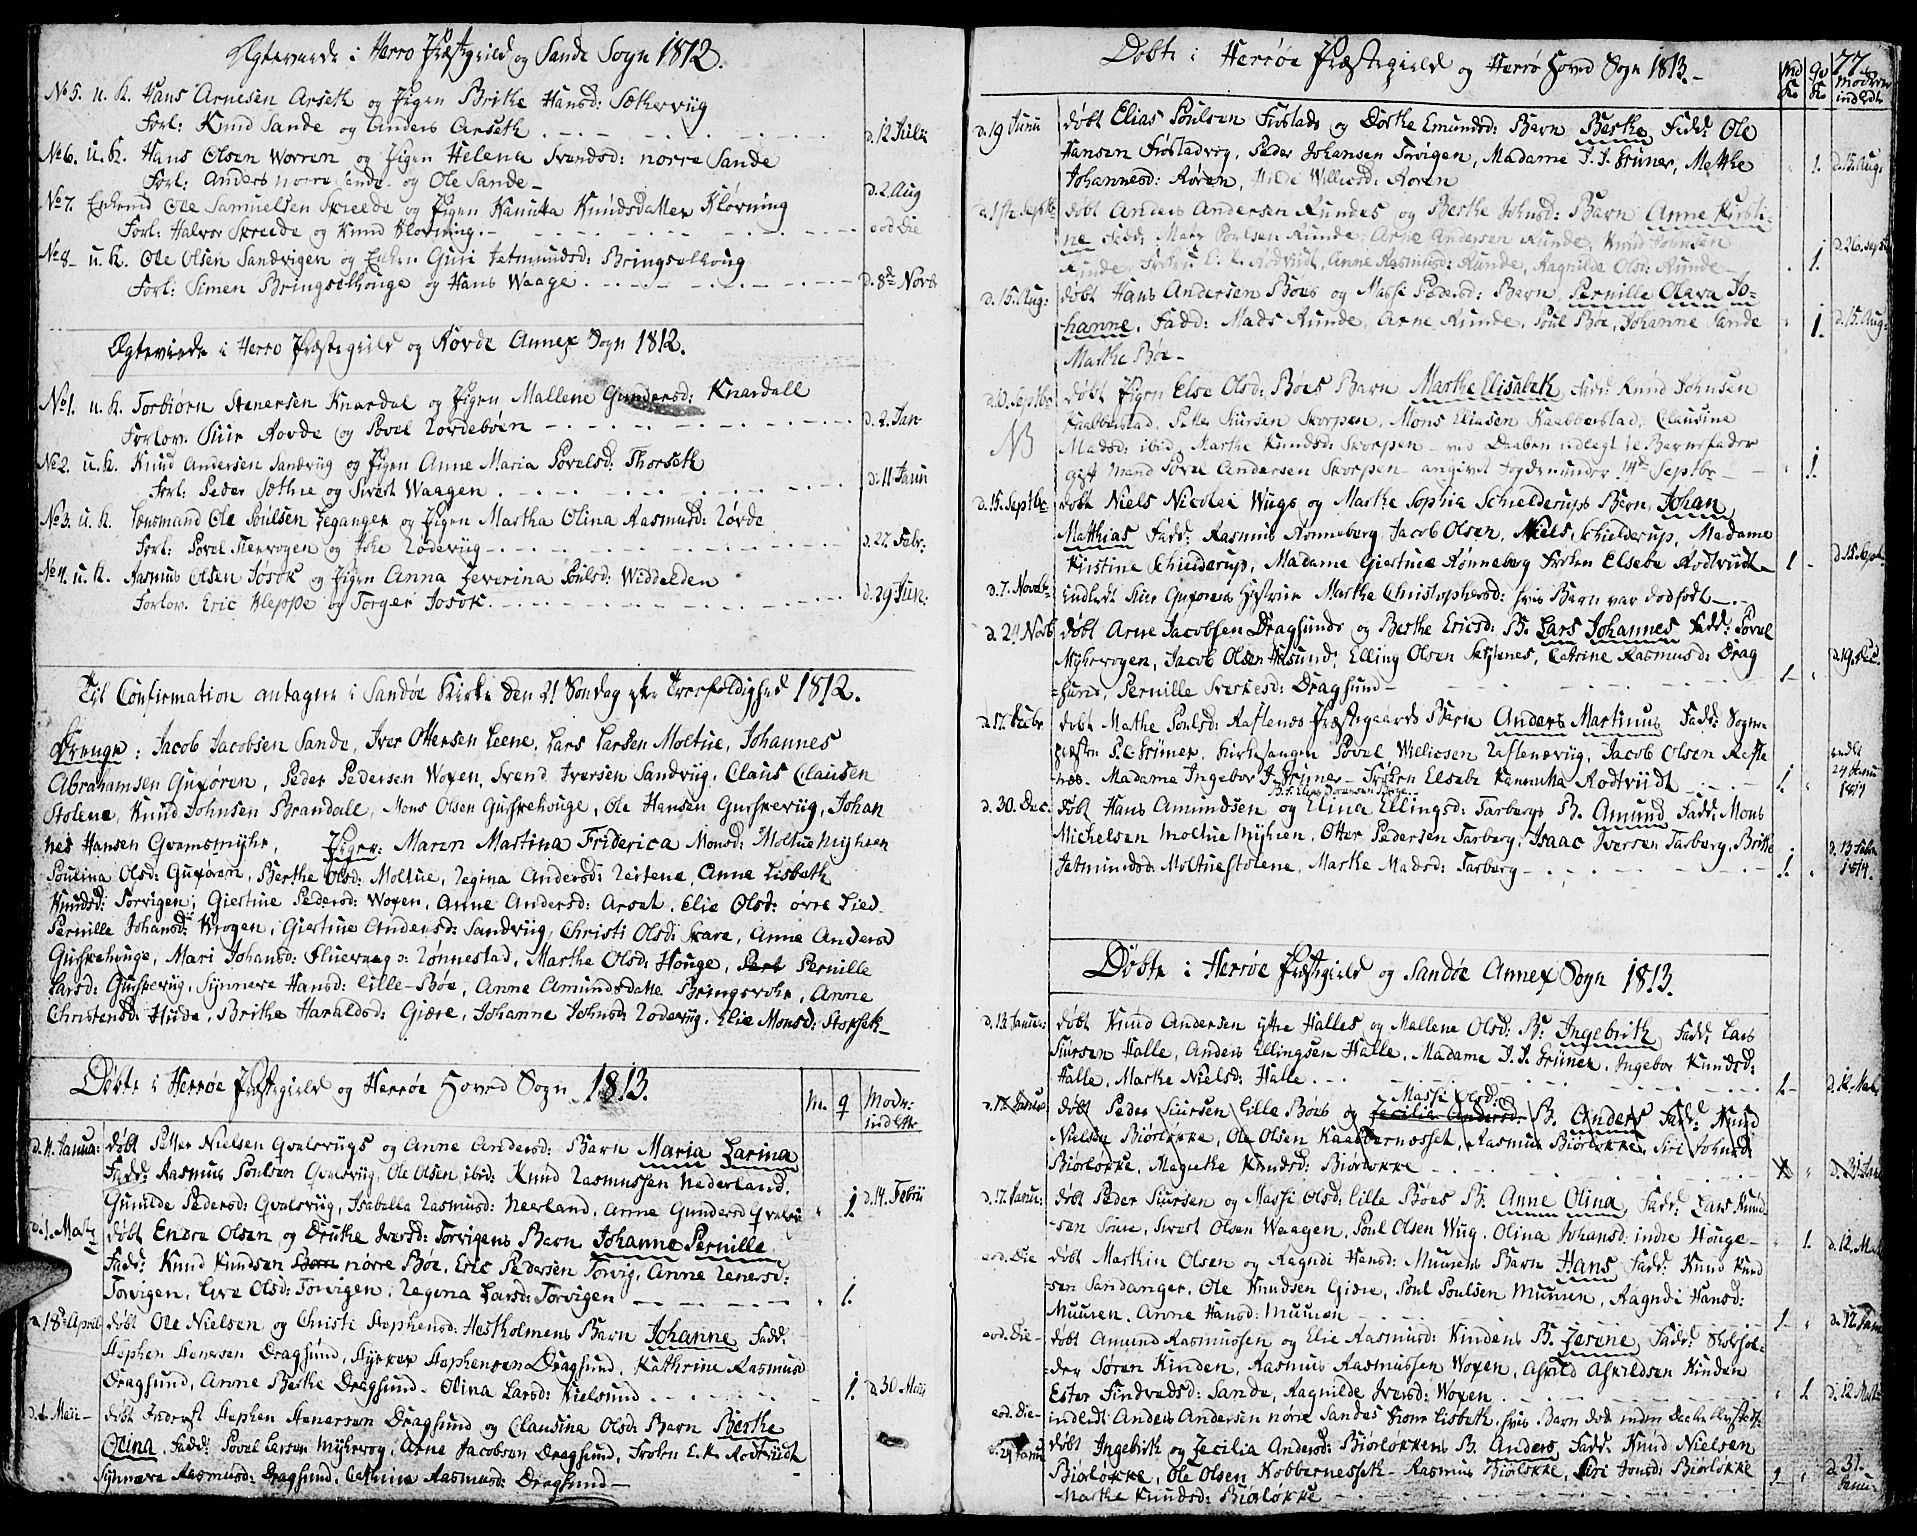 Ægteviede i Herro Præstegield og Sande Sogn 1812.
No 5. u. K. Hans Arnesen Arseth og Pigen Brithe Hansd: Sætherviig
Forl: Knud Sande og Anders Arseth d. 12 Julii
No 6. u. K. Hans Olsen Worren og Pigen Helena Svendsd: norre Sande
Forl: Anders norre Sande og Ole Sande d. 2 Aug
No 7. Enkemd Ole Samuelsen Skreede og Pigen Kanutta Knudsdatter Kløvning
Forl: Halvor Skreede og Knud Kløvning eod Die
No 8 u. K. Ole Olsen Sandvigen og Enken Guri Jetmundsd: Bringselhoug
Forl: Simen Bringselhouge og Hans Waage d. 8de Novbr
Ægteviede i Herro Præstegield og Rovde Annex Sogn 1812.
No 1. u. K. Torbiørn Stenersen Knardal og Pigen Mallene Gundersd: Knardall
Forlov. Siur Rovde og Povel Rovdebøen d. 2. Jan
No 2. u. K. Knud Andersen Sandviig og Pigen Anne Maria Povelsd: Thorseth
Forl: Peder Sæthre og Sivert Waagen d. 11 Janu
No 3. u. K. Lensmand Ole Poulsen Eeganger og Pigen Martha Olina Rasmusd: Rovde
Forl: Povel Stenvogen og Ole Roderiig d. 27. Febr:
No 4. u. K. Rasmus Olsen Josok og Pigen Anna Severina Poulsd: Widdelden
Forlov. Eric Kleppe og Torger Josok d. 29 Jun:
Til Confirmation antagne i Sandøe Kirke den 21 Søndag efter Treefoldighed 1812.
Drenge: Jacob Jacobsen Sande, Iver Ottersen Leene, Lars Larsen Moltue, Johannes
Abrahamsen Guxøren, Peder Pedersen Woxen, Svend Iversen Sandviig, Claus Clausen
Stolene, Knud Johnsen Brandall, Mons Olsen Gurskehouge, Ole Hansen Gurskeviig, Johan
nes Hansen Qvamsmyhr, Piger: Maren Martina Friderica Monsd: Moltuemyhren
Poulina Olsd: Guxøren, Berthe Olsd: Moltue, Regina Andersd: Leitene, Anne Lisbeth
Knudsd: Torvigen, Giertine Pedersd: Woxen, Anne Andersd: Arset, Elie Olsd: øvre Lied
Pernille Johansd: Krogen, Giertrue Andersd: Sandviig, Christi Olsd: Skare, Anne Andersd
Gurskehouge, Mari Johansd: Rønnestad, Marthe Olsd: Houge, Pernille
Larsd: Gurskeviig, Synneve Hansd: Lille-Bøe, Anne Amundsdatter Bringsvohr, Anne
Christensd: Hude, Brithe Haraldsd: Giære, Johanne Johnsd: Roderiig, Elie Monsd: Stopsek
Døbte i Herrøe Præstegield og Herrøe Hoved Sogn 1813. M. q Modr: indlette
d. 11. Janua: døbt Petter Nielsen Qvalsviigs og Anne Andersd: Barn Maria Larina
Fadd: Rasmus Poulsen Qvalsviig, Ole Olsen, ibid: Knud Rasmussen Nederland,
Gunilde Pedersd: Qvalsviig, Isabella Rasmusd: Neerland, Anne Gundersd Qvalsv 1 d. 14. Febru
d. 1. Marts døbt Endre Olsen og Druthe Iversd: Torvigens Barn Johanne Pernille
Fadd: Knud Knudsen nørre Bøe, Eric Pedersen Torvig, Anne Stenersd:
Torvigen, Live Olsd: Torvigen, Regina Larsd: Torvigen 1.
d. 18de April døbt Ole Nielsen og Christi Stephensd: Hestholmens Barn Johanne Fadd:
Stephen Stenersen Dragsund, Styrker Stephensen Dragsund, Kathrine Rasmusd
Dragsund, Anne Berthe Dragsund. Olina Larsd: Kielsund 1. d. 30 Maii
d. 1. Maii døbt Inderst Stephen Stenersen Dragsund og Clausina Olsd: Barn Berthe
Olina, Fadd: Povel Larsen Myhrvog, Arne Jacobsen Dragsund, Frøken E. K. Rodtvidt
Synneve Rasmusd: Dragsund, Cathrine Rasmusd: Dragsund
77
Døbte i Herrøe Præstegield og Herrø Hoved Sogn 1813. Md K. Qv K. Modren indledt
d 19 Junu døbt Elias Poulsen Frøstads og Dorthe Emundsd: Barn Berthe Fadd: Ole
Hansen Frøstadvog, Peder Johansen Torvigen, Madame J. J. Grüner, Methe
Johannesd: Røren, Hilde Willicsd: Roren 1. d. 15. Aug:
døbt Anders Andersen Rundes og Berthe Johnsd: Barn Anne Kirsti-
ne Fadd: Mads Poulsen Runde, Arne Andersen Runde, Knud Johnsen
Runde, Frøken E. K. Rodtvidt, Anne Rasmusd: Runde, Ragnilde Olsd: Runde 1. d. 26 Sept
d. 15. Aug: døbt Hans Andersen Boes og Masse Pedersd: Barn, Pernille Olava Jo-
hanne, Fadd: Mads Runde, Arne Runde, Poul Bøe, Johanne Sande
Marthe Bøe 1. d. 15. Aug:
d. 10. Septbr døbt Pigen Else Olsd: Bøes Barn Marthe Elisabeth, Fadd: Knud Johnsen
Kaabberstad, Petter Siursen Skorpen, Mons Eliasen Kaabberstad, Clausine
NB Madsd: ibid, Marthe Knudsd: Skorpen ved Daaben udlegt til Barnefader
gift Mand Povel Andersen Skorpen angivet Fogden under 14de Septbr 1.
d. 15. Septbr døbt Niels Nicolai Wugs og Marthe Sophia Schielderups Barn, Johan
Matthias Fadd: Rasmus Rønneberg, Jacob Olsen, Niels Schielderup, Madame
Kirstine Schielderup, Madame Giertrue Rønneberg, Frøken Elsebe Rodtvidt 1 d. 15 Sept
d. 7. Novbr Indledt Siur Guxørens Hustrue Marthe Christophersd: hvis Barn var dodfødt
d. 24 Novb døbt Arne Jacobsen Dragsunds og Berthe Ericsd: B. Lars Johannes Fadd: Povel
Myhrvogen, Jacob Olsen Kilsund, Elling Olsen Catrine Rasmusd: Drag
sund, Pernille Sverkesd: Dragsund 1 d. 19. Dec.
d. 17. Decbr døbt Mathe Poulsd: Rafteness Præstegaards Barn Anders Martinus Fadd: Sogne
præsten P. C. Grüner, Kirkesanger Povel Willicsen Raftenæviig, Jacob Olsen Rafte
næs. Madame Ingebor J. Grüner. Frøken Elsebe Kanutta Rodtvidt 1. indlt 24 Janu 1814
d. 30. Dec. døbt Hans Amundsen og Elina Ellingsd: Tarbergs B. Amund Fadd: Mons
Michelsen Moltue Myhren, Otter Pedersen Tarberg, Isaac Iversen Tarberg, Brithe
Jetmundsd: Moltuestolene, Marthe Madsd: Tarberg 1. d. 13 Febr 1814.
Døbte i Herrøe Præstegield og Sandøe Annex Sogn 1813.
d. 12. Janu: døbt Knud Andersen ytre Halles og Mallene Olsd: B. Ingebrith, Fadd: Lars
Siursen Halle, Anders Ellingsen Halle, Madame J. J. Grüner, Ingebor Knudsd:
Halle, Marthe Nielsd: Halle 1 d. 12. Marts
d. 17. Janua døbt Peder Siursen Lille Boes og Masse Olsd: Cecilia Andersd: B. Anders Fadd: Knud
Nielsen Biørløkke, Ole Olsen Kaabbernesset, Rasmus Biørløkke, Siri Johnsd:
Biørløkke, Magrethe Knudsd: Biørløkke d. 31 Janu
d. 17. Janu: døbt Peder Siursen og Masse Olsd: Lille Boes B. Anne Olina, Fadd: Lars Knud
sen Sørue, Sivert Olsen Waagen, Poul Olsen Wug, Olina Johansd: indre Houge 1. d. 12. Mar
eod. Die døbt Marthin Olsen og Ragndi Hansd: Muurens Barn Hans Fadd: Knud Knud
sen Sandanger, Ole Knudsen Giære, Poul Poulsen Muuren, Ragndi Hansd:
Muuren, Anne Hansd: Muuren 1 d. 12 Janu
eod. Die døbt Amund Rasmussen og Elie Rasmusd: Kindens B. Zerine, Fadd: Skolehol-
der Søren Kinden, Rasmus Rasmussen Woxen, Askild Askildsen Kinden
Ester Findvedsd: Sande, Ragnilde Iversd: Woxen 1. d. 12 Marts
eod. Die indledt Anders Andersen nørre Sandes Kone Lisbeth, hvis Barn død inden
d. 24 Janu døbt Ingebrith og Zecilia Andersd: Biørløkkens B. Anders, Fadd: Knud Nielsen
Biørløkke, Ole Olsen Kobbernesset, Rasmus Biørløkke, Siri Jonsd: Biørløkke
Marthe Knudsd: Biørløkke 1 d 31. Janu